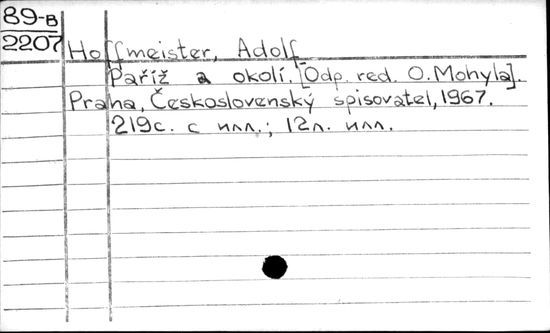 89-в
2207
Hoffmeister, Adolf
Paříž a okolí. [Odp. red. O. Mohyla].
Praha, Československý spisovatel, 1967.
219с. с илл.; 12л. илл.